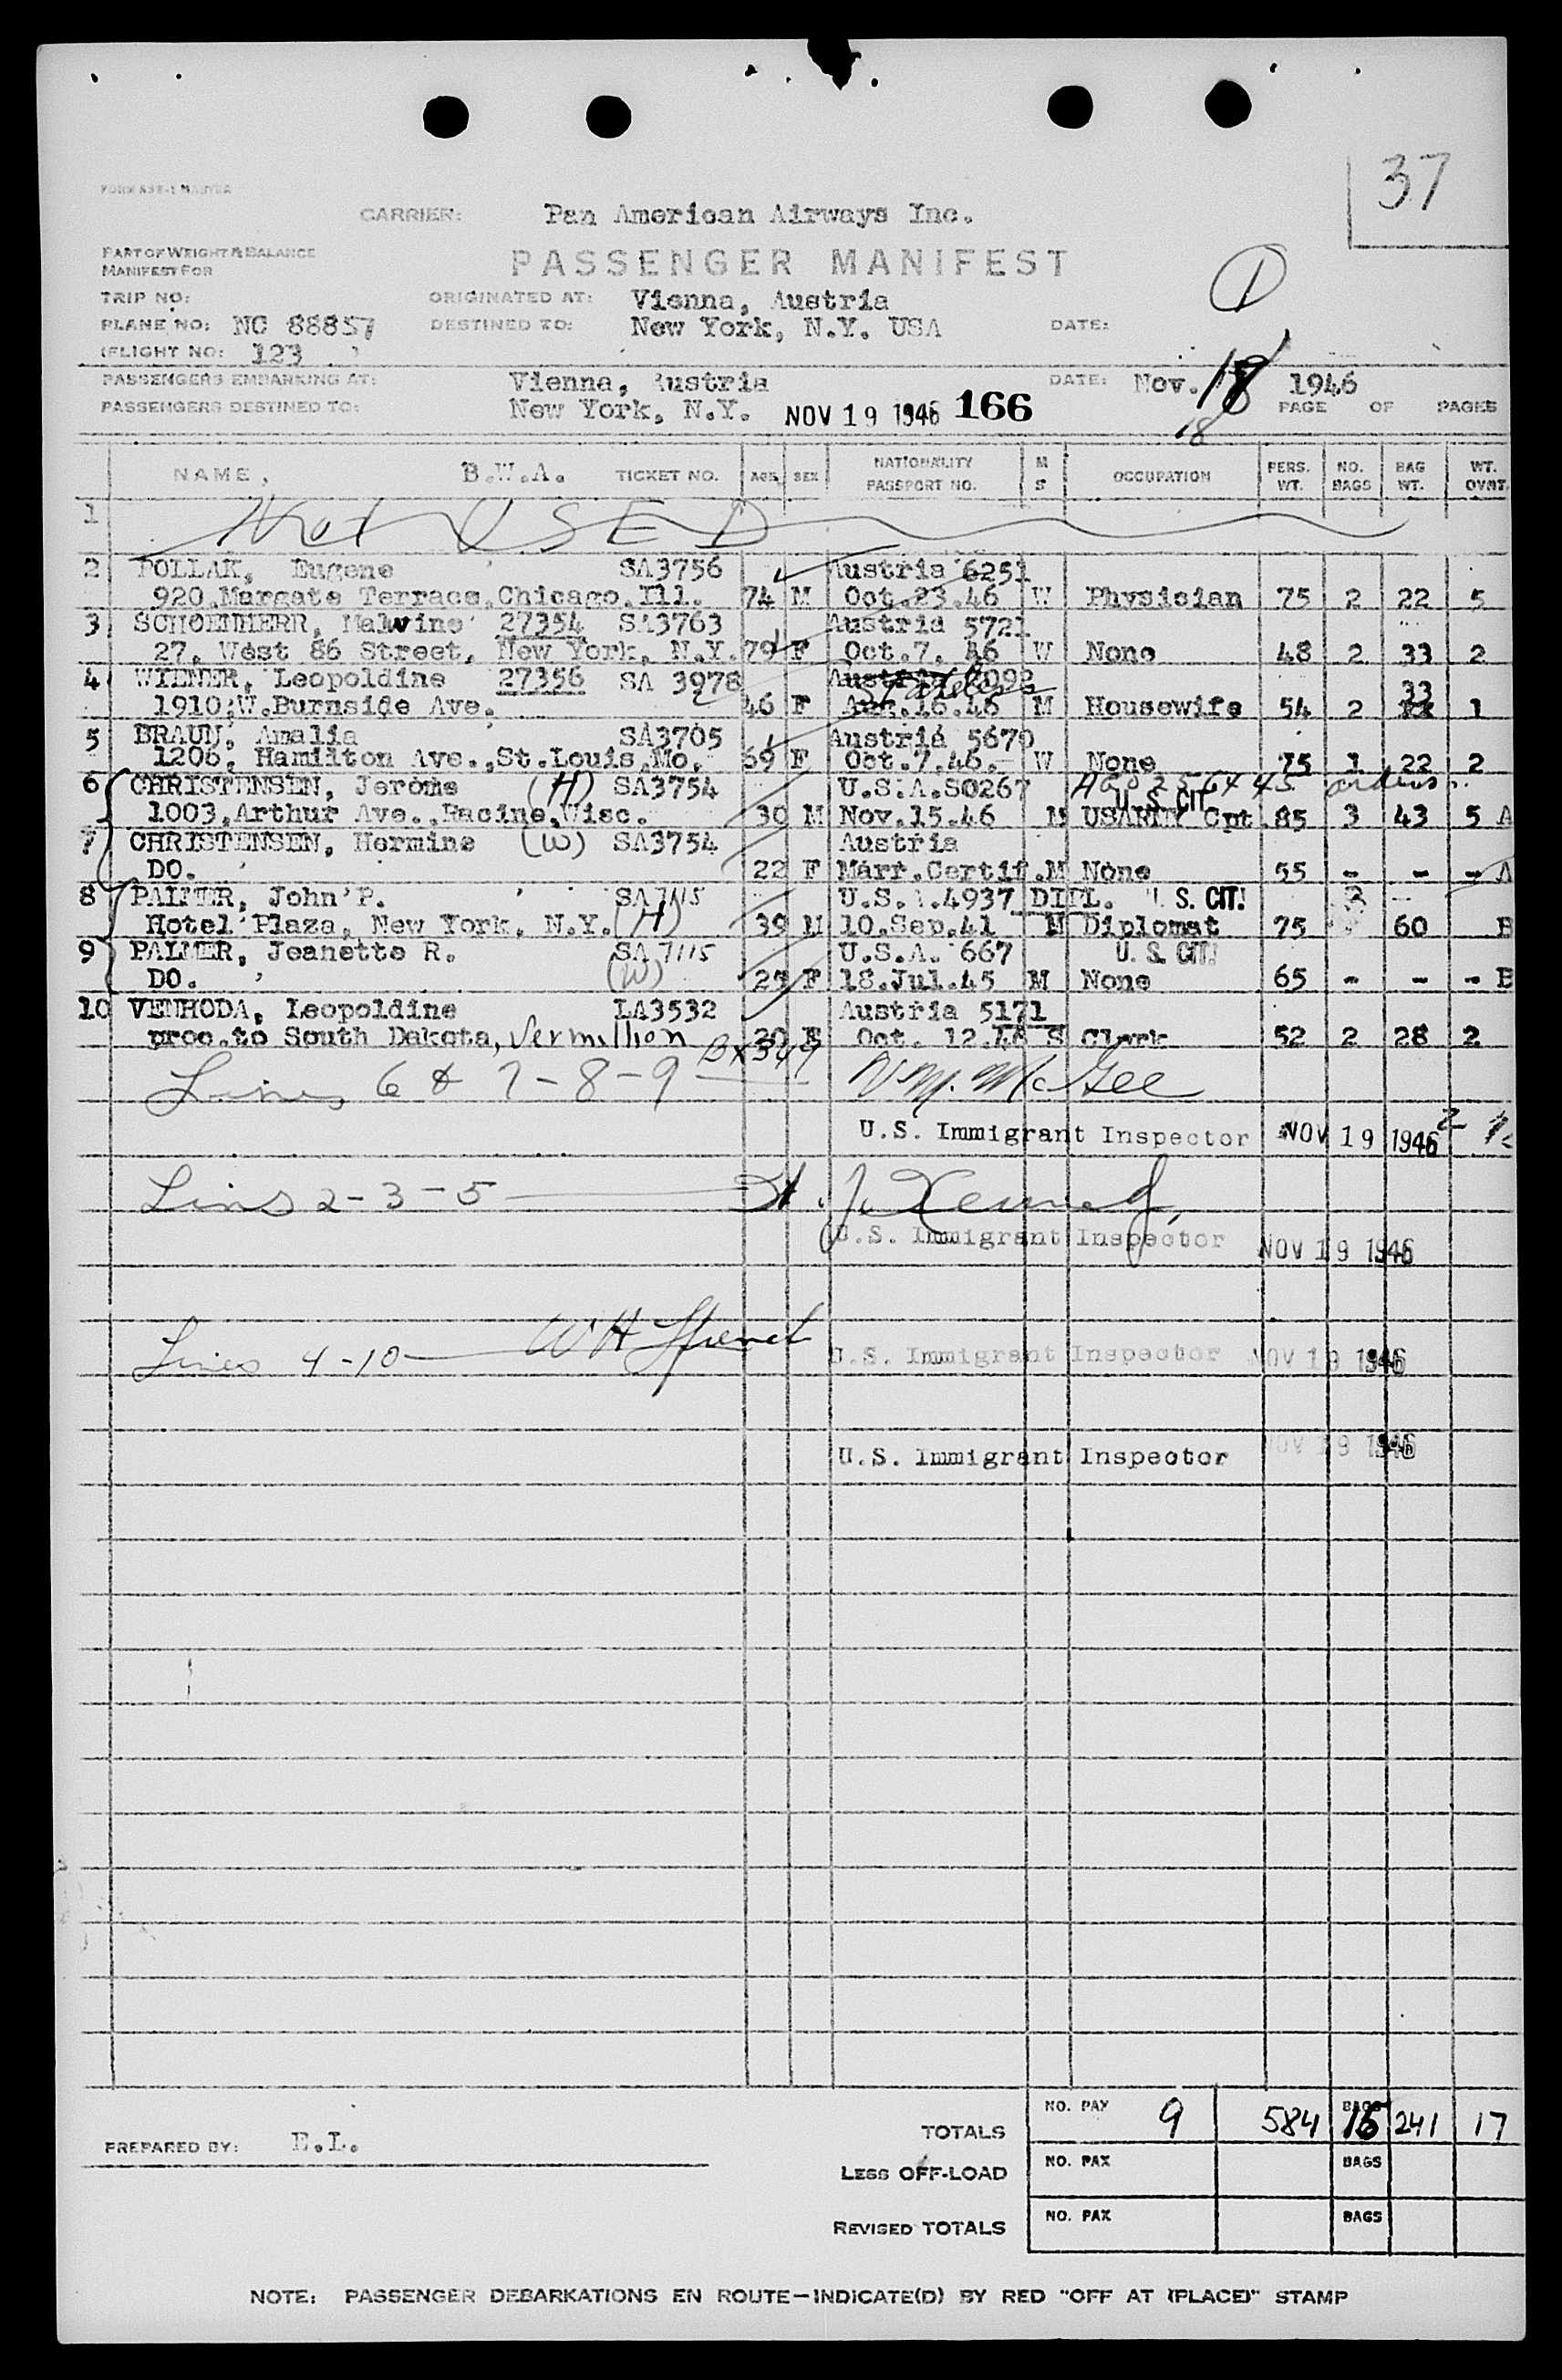 37
CARRIER: Pan American Airways Inc.
PART OF WEIGHT & BALANCE
MANIFEST FOR
PASSENGER MANIFEST
1
TRIP NO:
ORIGINATED AT: Vienna, Austria
PLANE NO: NC 88857 DESTINED TO: New York, N.Y. USA DATE:
(FLIGHT NO: 123 )
PASSENGERS EMBARKING AT: Vienna, Austria DATE: Nov. 18 1946
PASSENGERS DESTINED TO: New York, N.Y. NOV 19 1946 166 18 PAGE OF PAGES
NAME, B.W.A. TICKET NO. AGE SEX NATIONALITY PASSPORT NO. M S OCCUPATION PERS. WT. NO. BAGS BAG WT. WT. OVWT.
1 Not USED
2 POLLAK, Eugene SA3756 Austria 6251
920.Margate Terrace.Chicago.Ill. 74 M Oct.23.46 W Physician 75 2 22 5
3 SCHOENHERR, Malvine 27354 SA3763 Austria 5721
27. West 86 Street, New York, N.Y. 79 F Oct.7. 46 W None 48 2 33 2
4 WIENER, Leopoldine 27356 SA 3978 Austria Stateless 33
1910.W.Burnside Ave. 46 F Aug.16.46 M Housewife 54 2 1
5 BRAUN, Amalia SA3705 Austria 5670
1206, Hamilton Ave.,St.Louis.Mo. 69 F Oct.7.46. W None 75 1 22 2
6 CHRISTENSEN, Jerome (H) SA3754 U.S.A.S0267 orders
1003.Arthur Ave.,Racine,Wisc. 30 M Nov.15.46 M U.S. CIT. USARMY Cpt. 85 3 43 5 A
7 CHRISTENSEN, Hermine (W) SA3754 Austria
DO. 22 F Marr.Certif.M None 55 - - - A
8 PALMER, John P. SA 7115 U.S.A.4937 DIPL. U.S. CIT.
Hotel Plaza, New York, N.Y.(H) 39 M 10.Sep.41 M Diplomat 75 60 B
9 PALMER, Jeanette R. SA 7115 U.S.A. 667 U.S. CIT.
DO. (W) F 18.Jul.45 M None 65 - - - B
10 VENHODA, Leopoldine LA3532 Austria 5171
proc.to South Dakota, Vermillion 20 F Oct. 12.46 S Clerk 52 2 28 2
Lines 6 & 7-8-9 McGee
U.S. Immigrant Inspector NOV 19 1946
Lines 2-3-5
U.S. Immigrant Inspector NOV 19 1946
Lines 4-10
U.S. Immigrant Inspector NOV 19 1946
U.S. Immigrant Inspector NOV 19 1946
TOTALS NO. PAX 9 584 BAGS 15 241 17
PREPARED BY: E.L.
LESS OFF-LOAD NO. PAX BAGS
REVISED TOTALS NO. PAX BAGS
NOTE: PASSENGER DEBARKATIONS EN ROUTE—INDICATE(D) BY RED "OFF AT (PLACE)" STAMP